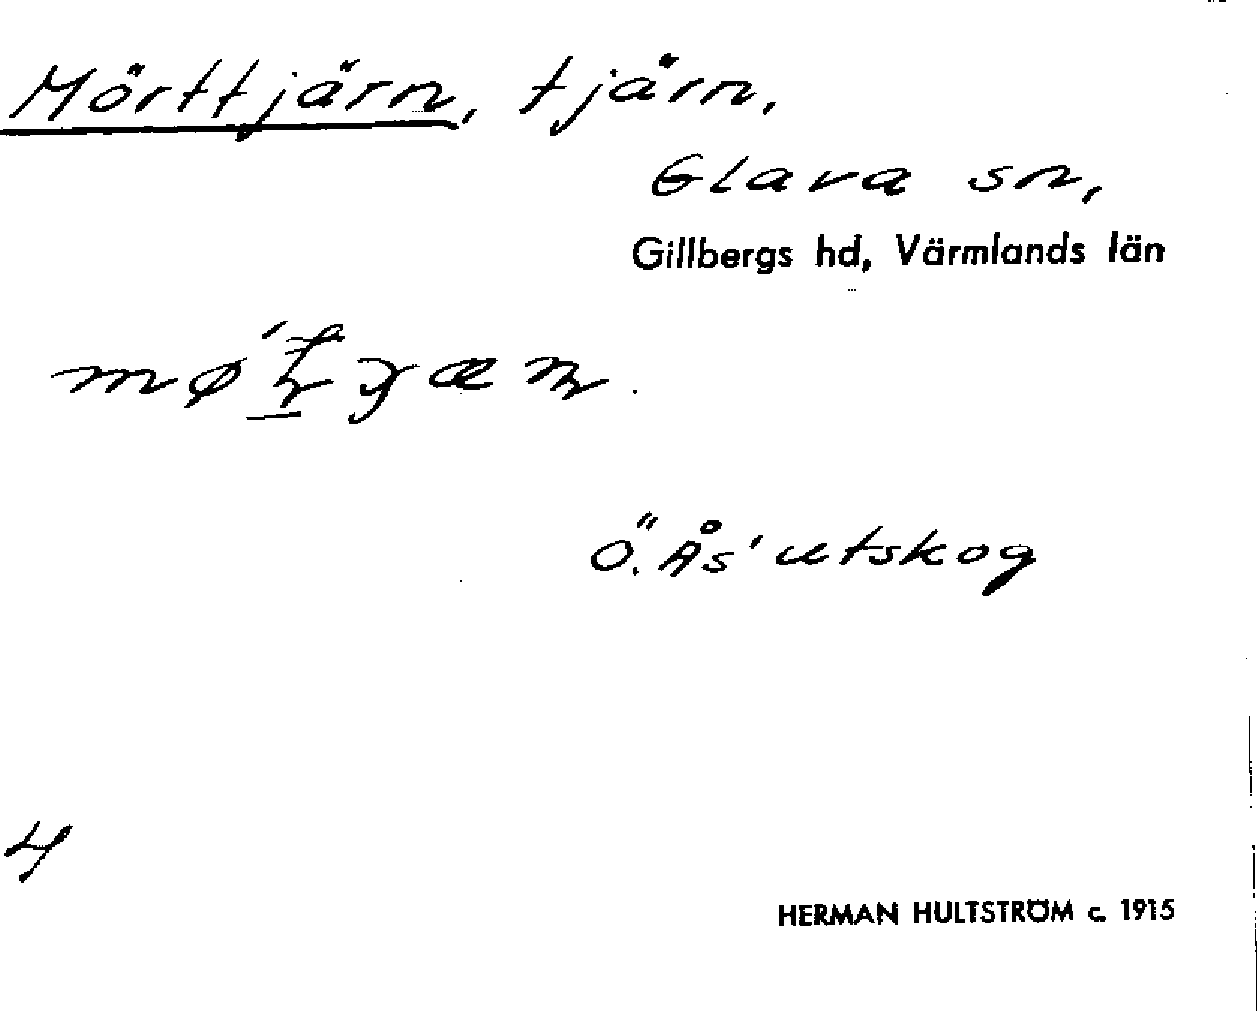 Mörttjärn, tjärn,
Glava sn,
Gillbergs hd, Värmlands län
Ö. Ås' utskog
4
HERMAN HULTSTRÖM c. 1915